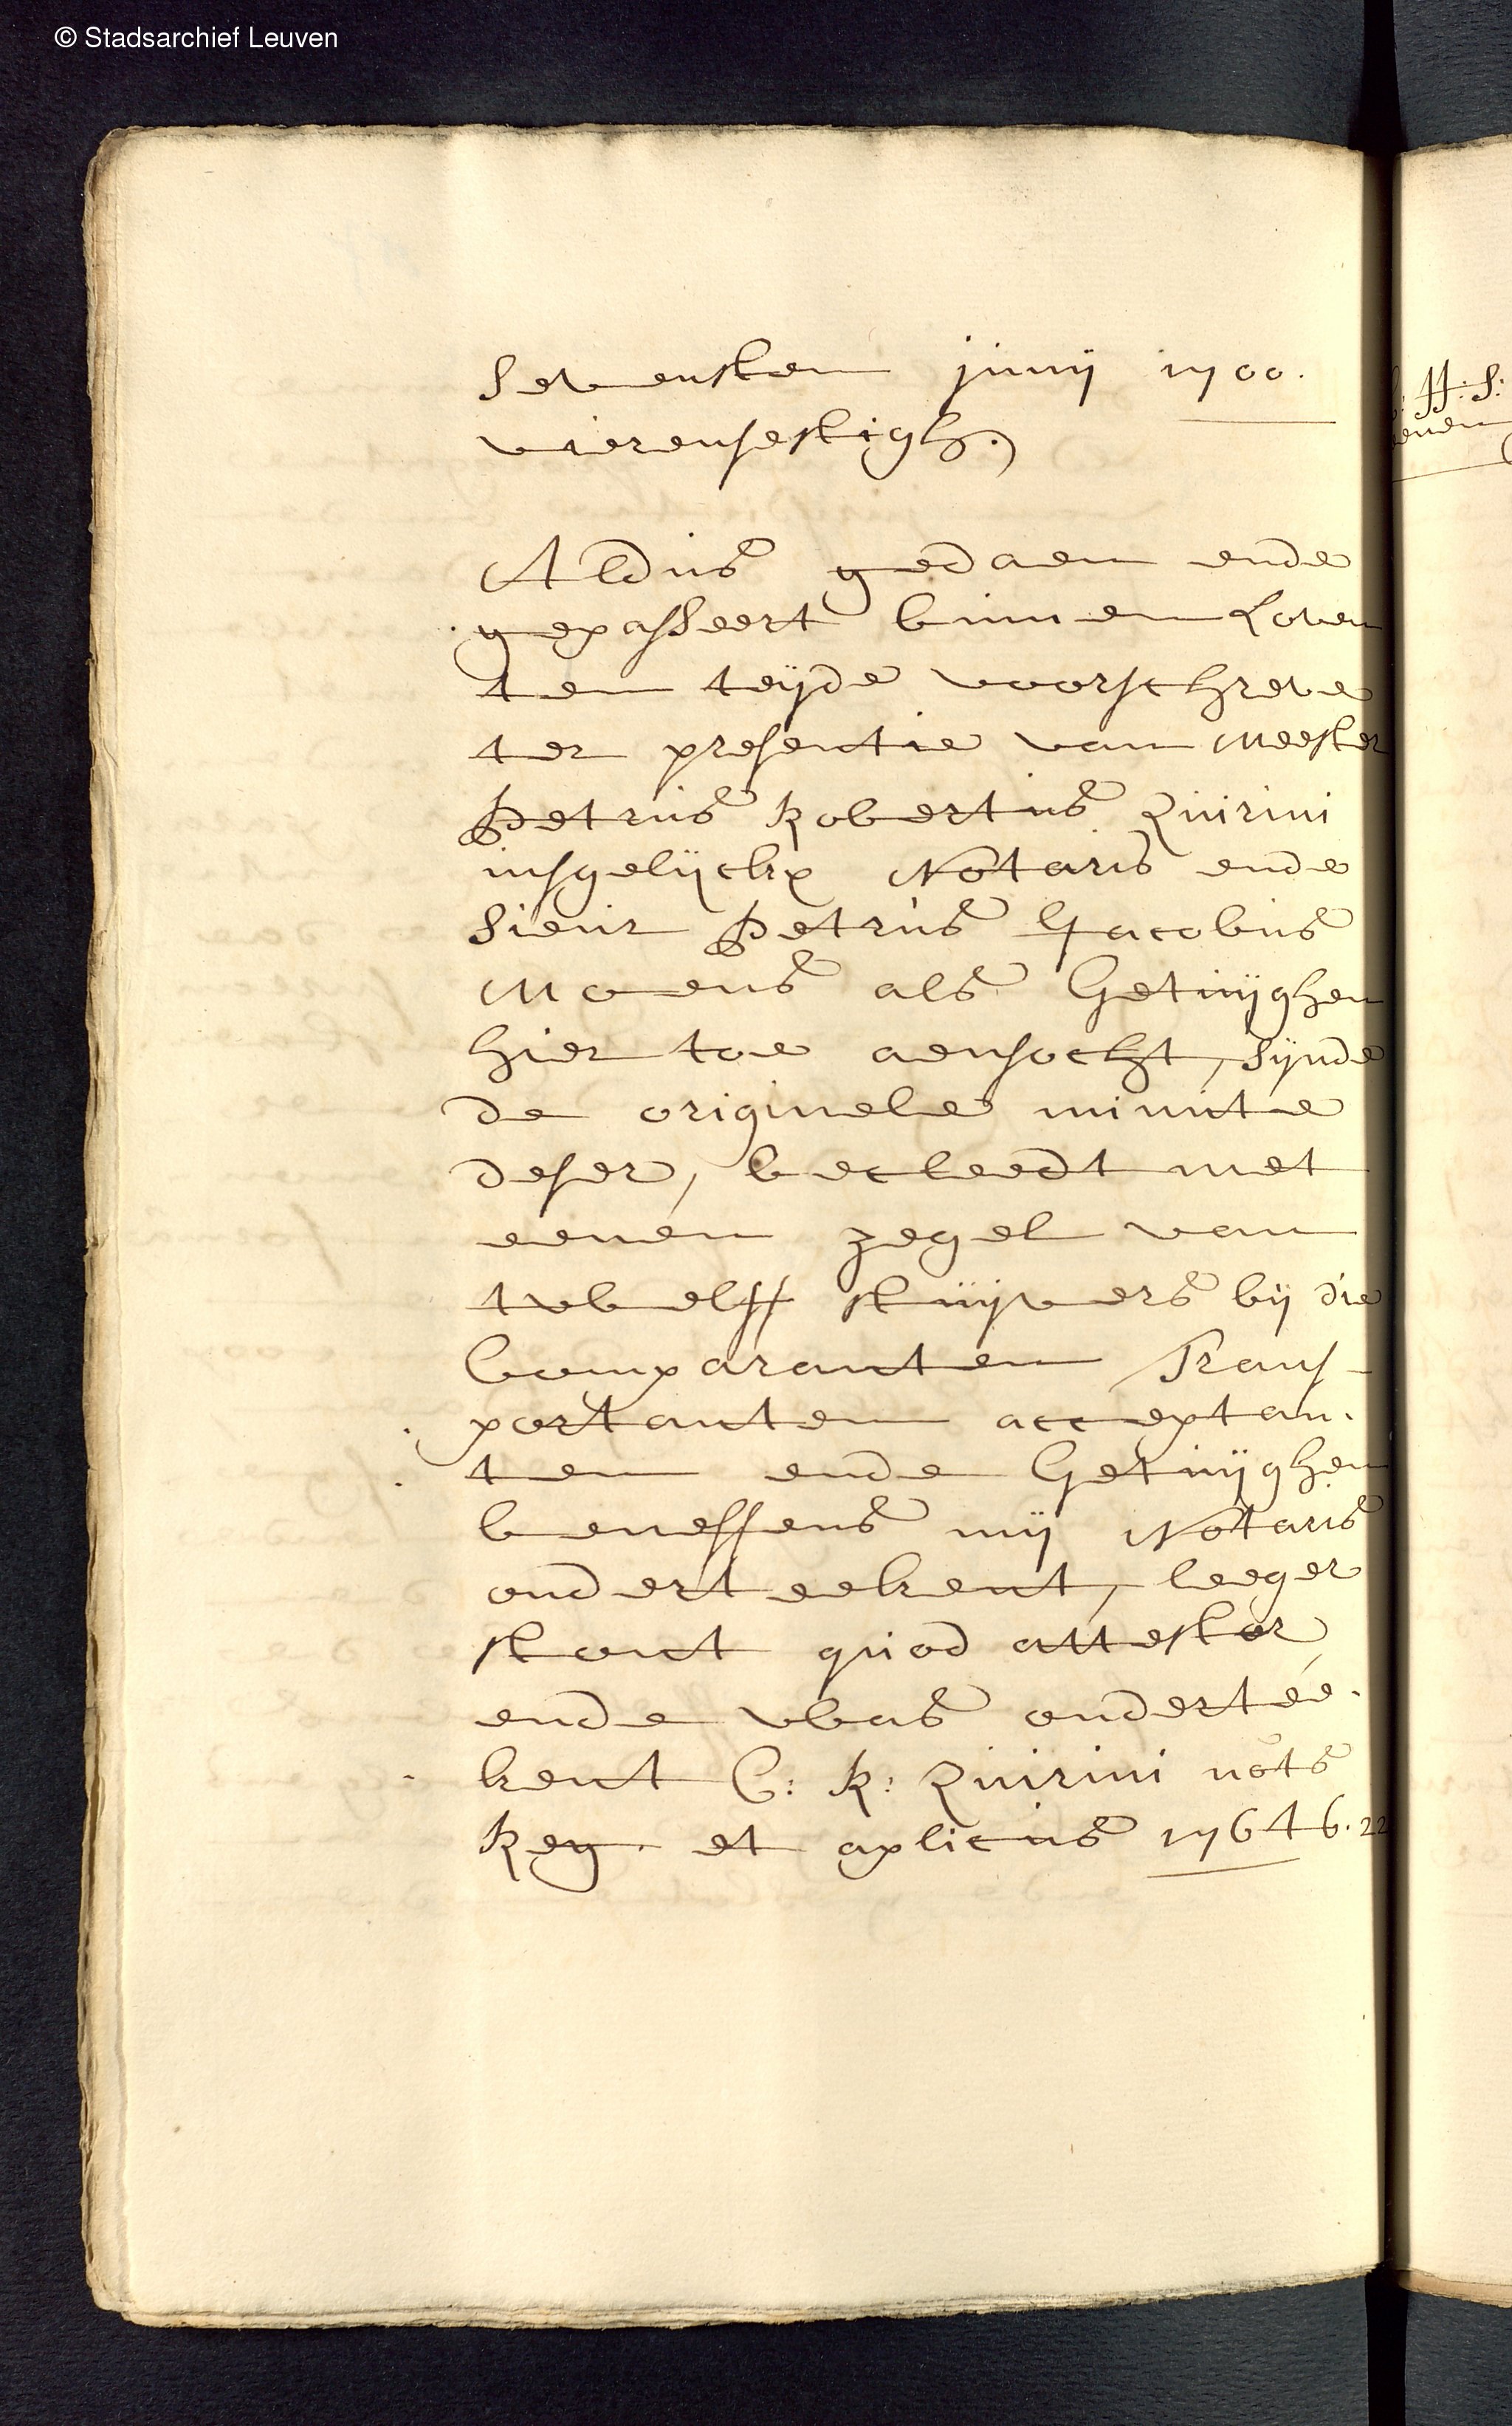 © Stadsarchief Leuven
Sevensten junij 1700.
vierensestigh.)
Aldus gedaen ende
gepasseert binnen Loven
ten teyde voorschreve
ter presentie van Meester
Petrus Robertus Quirini
insgelijckx Notaris ende
Sieur Petrus Jacobus
Moens als Getuijghen
hier toe aensocht, sijnde
de originele minute
deser, becleedt met
eenen zegel van
twelff stuijvers bij die
Comparanten Trans-
portanten acceptan.
ten ende Getuijghen
beneffens mij Notaris
onderteekent, leeger
stont quod attestor
ende was ondertee.
kent C: R: Quirini nots
Reg. et aplicus 1764 6. 22